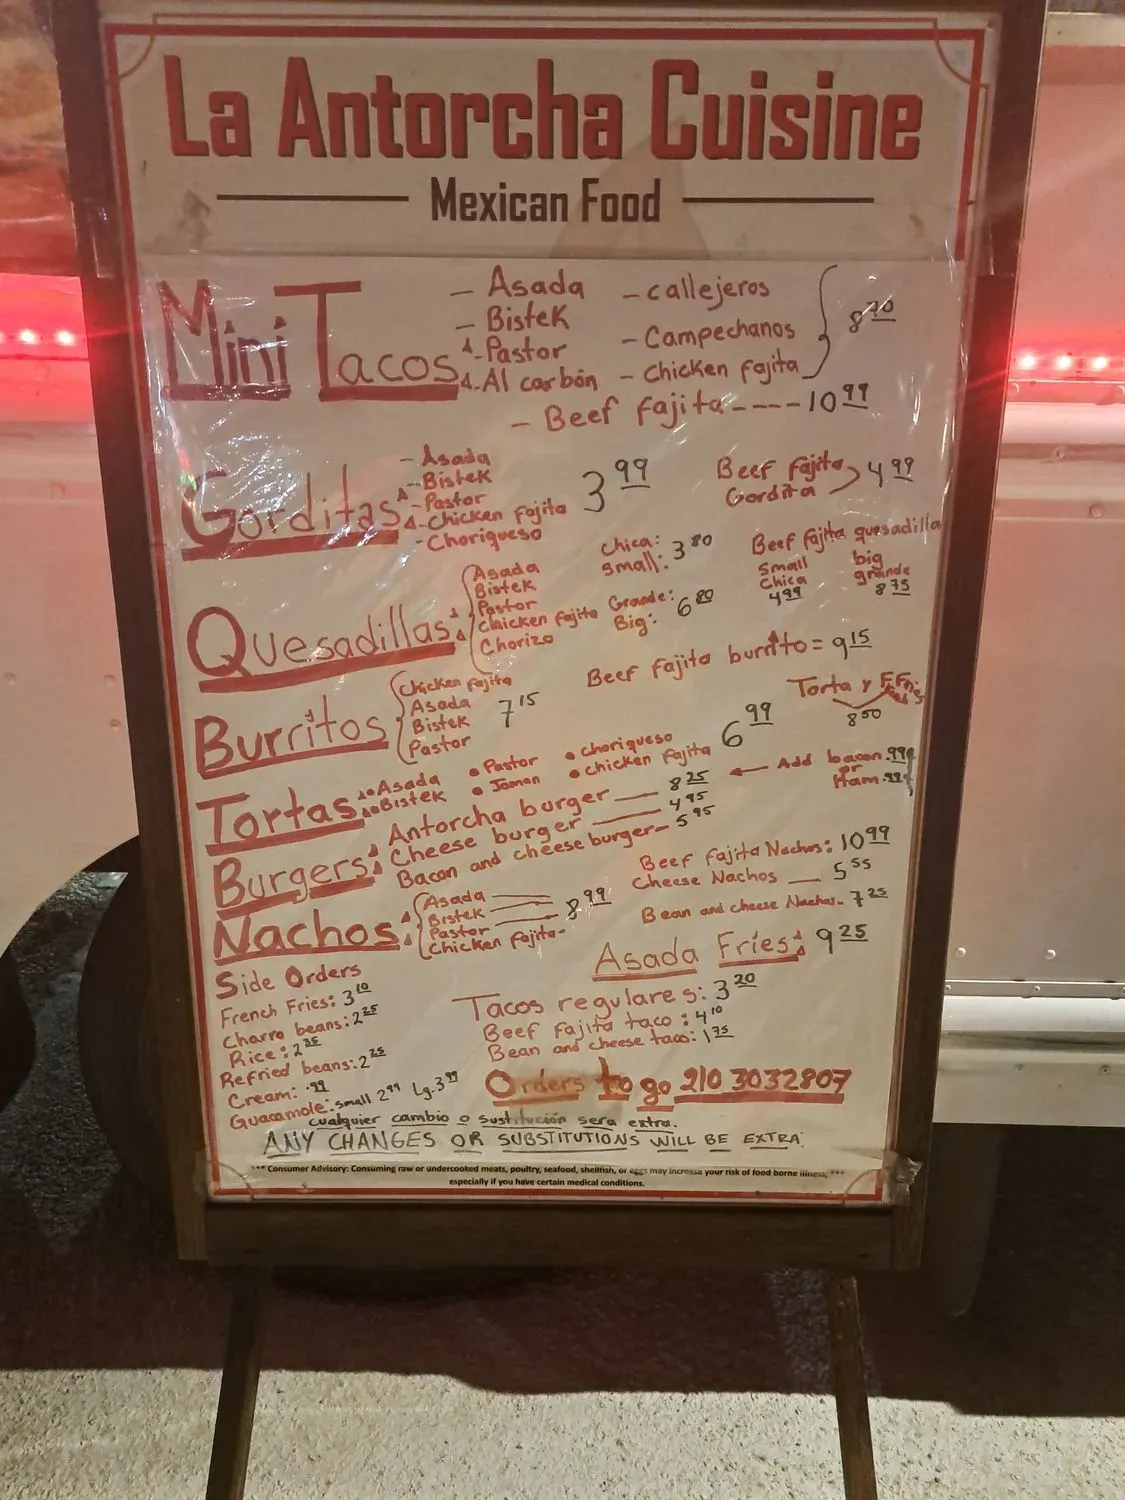 La Antorcha Cuisine
Mexican Food
Mini Tacos
- Asada
- Bistek
- Pastor
- Al carbón
- callejeros
- Campechanos
- chicken fajita
8 70
- Beef fajita ---- 10 99
Gorditas
- Asada
- Bistek
- Pastor
- Chicken fajita
- Choriqueso
3 99
Beef fajita
Gordita
4 99
Quesadillas
Asada
Bistek
Pastor
chicken fajita
Chorizo
chica:
small: 3 80
Grande:
Big: 6 80
Beef fajita quesadilla
small
chica
4 99
big
grande
8 75
Burritos
Chicken fajita
Asada
Bistek
Pastor
7 15
Beef fajita burrito = 9 15
Tortas
• Asada
• Bistek
• Pastor
• Jamon
• choriqueso
• chicken fajita
6 99
Torta y F.Fries
8 50
Burgers
Antorcha burger — 8 25
Cheese burger — 4 95
Bacon and cheese burger - 5 95
Add bacon .99¢
or
Ham .99¢
Nachos
Asada
Bistek
Pastor
Chicken fajita -
8 99
Beef fajita Nachos: 10 99
Cheese Nachos — 5 55
Bean and cheese Nachos - 7 25
Asada Fries: 9 25
Side Orders
French Fries: 3 10
charro beans: 2 25
Rice: 2
Refried beans: 2 25
Cream: .99
Guacamole: small 2 99 Lg. 3 99
Tacos regulares: 3 20
Beef fajita taco: 4 10
Bean and cheese taco: 1 75
Orders to go 210 3032807
cualquier cambio o sustitución sera extra.
ANY CHANGES OR SUBSTITUTIONS WILL BE EXTRA.
*** Consumer Advisory: Consuming raw or undercooked meats, poultry, seafood, shellfish, or eggs may increase your risk of food borne illness, ***
especially if you have certain medical conditions.